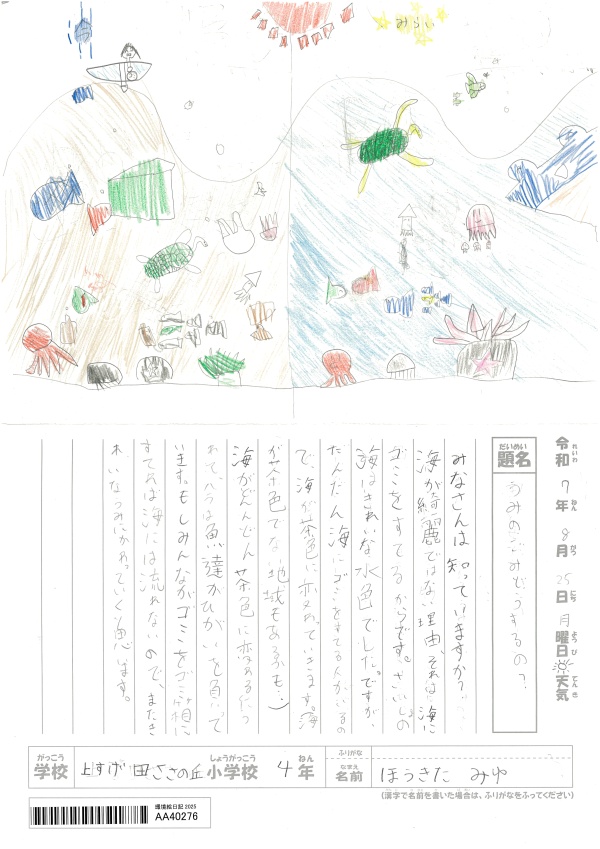 みらい
令和7年8月25日月曜日天気
れいわ ねん がつ にち ようび てんき
だいめい
題名
うみのごみどうするの?
みなさんは知っていますか?
海が綺麗ではない理由、それは海に
ゴミをすてるからです。さいしょの
海はきれいな水色でした。ですが、
だんだん海にゴミをすてる人がいるの
で、海が茶色に変わっていきます。(海
が茶色でない地域もあるかも…)
海がどんどん茶色に変わるに
れて、バラは魚達がひがいを負って
います。もしみんながゴミをゴミ箱に
すてれば海には流れないので、またき
れいなうみにかわっていくと思います。
がっこう
学校
上すげ田ささの丘小学校
しょうがっこう
4年
ねん
ふりがな
なまえ
名前
ほうきた みゆ
(漢字で名前を書いた場合は、ふりがなをふってください)
環境絵日記 2025
AA40276